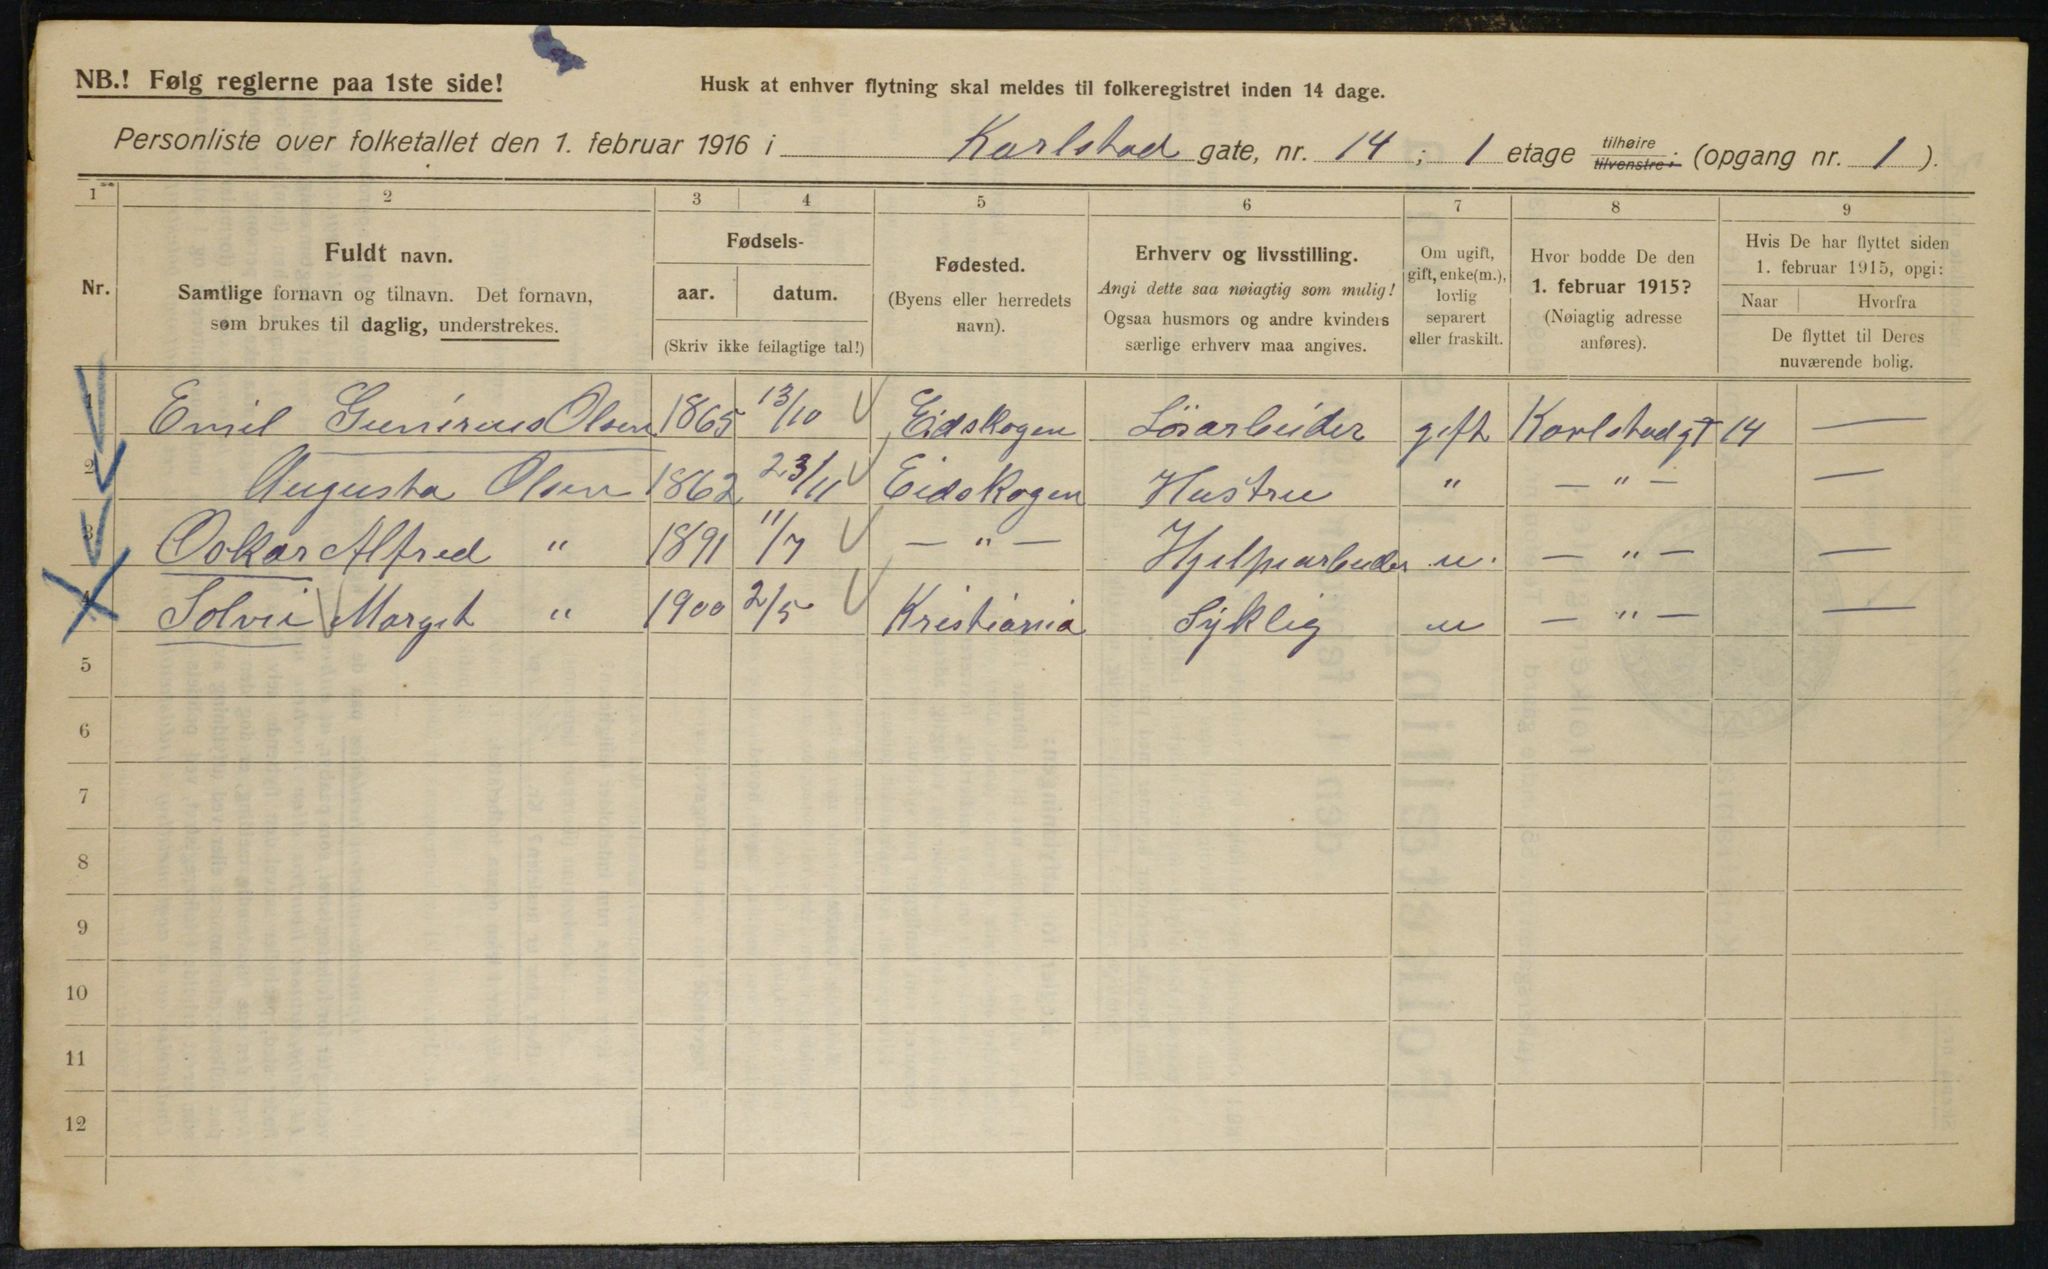 NB.! Følg reglerne paa 1ste side!
Husk at enhver flytning skal meldes til folkeregistret inden 14 dage.
Personliste over folketallet den 1. februar 1916 i Karlstad gate, nr. 14 ; 1 etage tilhøire tilvenstre; (opgang nr. 1 ).
1 2 3 4 5 6 7 8 9
Nr.
Fuldt navn.
Samtlige fornavn og tilnavn. Det fornavn,
som brukes til daglig, understrekes.
Fødsels-
aar. datum.
(Skriv ikke feilagtige tal!)
Fødested.
(Byens eller herredets
navn).
Erhverv og livsstilling.
Angi dette saa nøiagtig som mulig!
Ogsaa husmors og andre kvinders
særlige erhverv maa angives.
Om ugift,
gift, enke(m.),
lovlig
separert
eller fraskilt.
Hvor bodde De den
1. februar 1915?
(Nøiagtig adresse
anføres).
Hvis De har flyttet siden
1. februar 1915, opgi:
Naar Hvorfra
De flyttet til Deres
nuværende bolig.
1 Emil Gunerius Olsen 1865 13/10 Eidskogen Løsarbeider gift Karlstadgt 14 —
2 Augusta Olsen 1862 23/11 Eidskogen Hustru " — " — —
3 Oskar Alfred " 1891 11/7 — " — Hjelpearbeider u. — " — —
4 Solvei Margit " 1900 2/5 Kristiania Syklig u — " — —
5
6
7
8
9
10
11
12